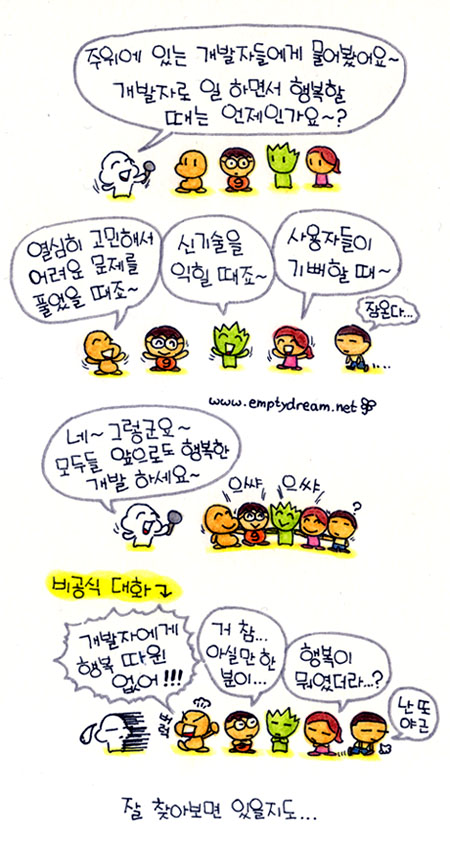 주위에 있는 개발자들에게 물어봤어요~
개발자로 일 하면서 행복할
때는 언제인가요~?
열심히 고민해서
어려운 문제를
풀었을 때죠~
신기술을
익힐 때죠~
사용자들이
기뻐할 때~
잠온다...
www.emptydream.net
네~ 그렇군요~
모두들 앞으로도 행복한
개발 하세요~
으쌰
으쌰
?
비공식 대화
개발자에게
행복 따윈
없어!!!
버럭
거 참...
아실만 한
분이...
행복이
뭐였더라...?
난 또
야근
잘 찾아보면 있을지도...